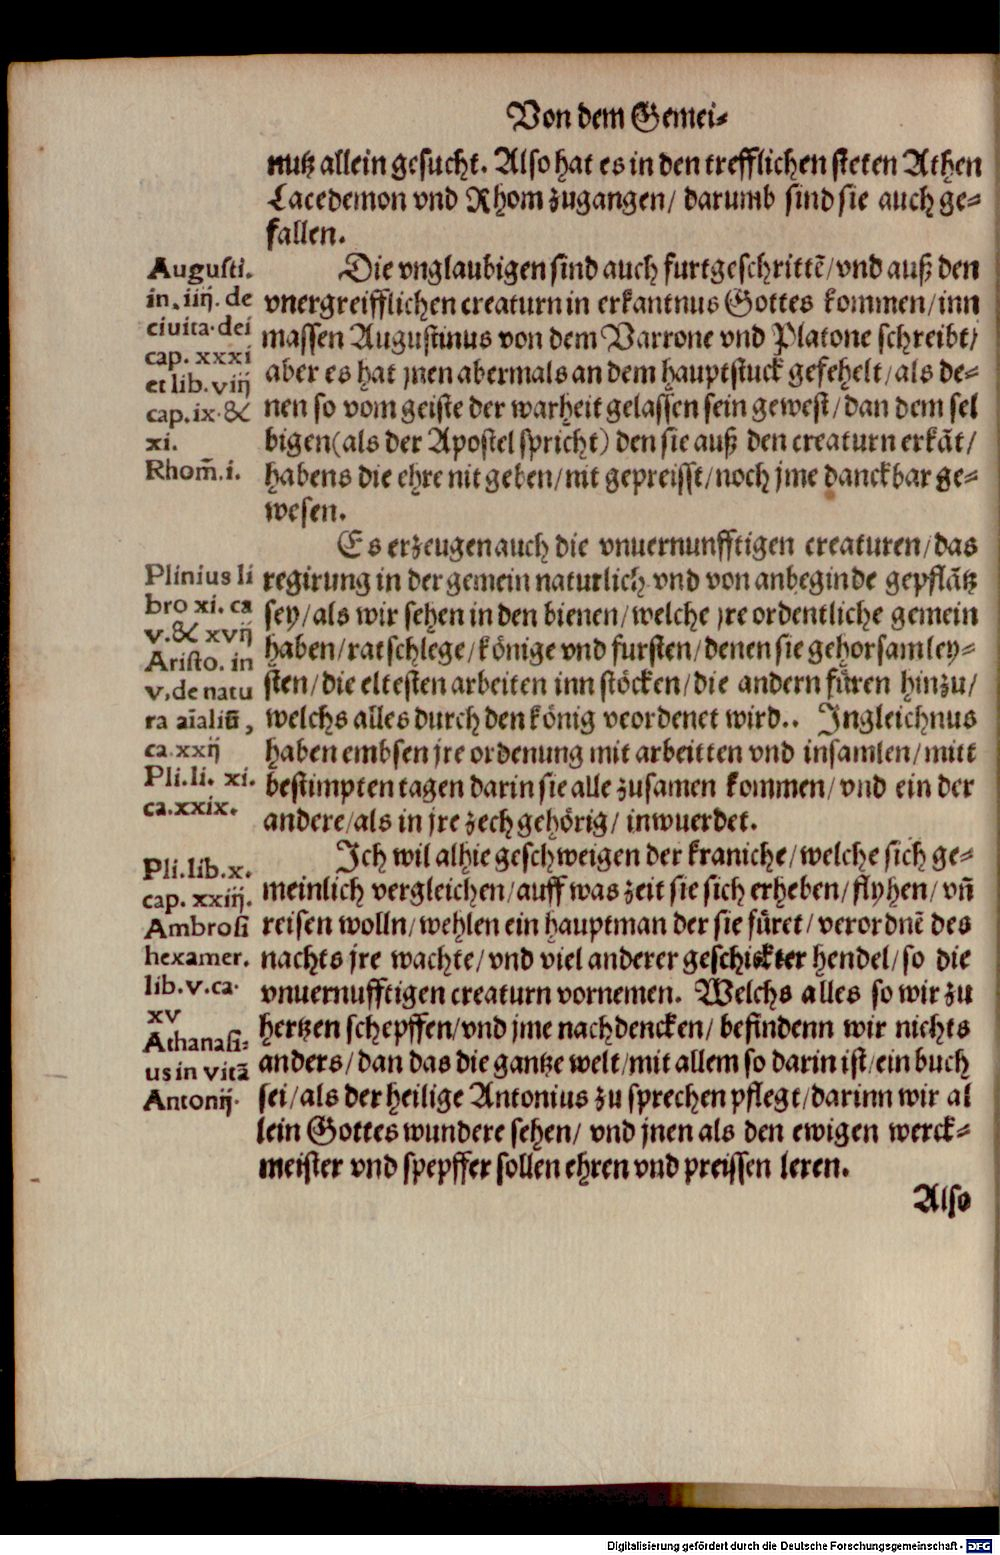 Von dem Gemei⸗
nutz allein gesucht. Also hat es in den trefflichen steten Athen
Lacedemon vnd Rhom zugangen/ darumb sind sie auch ge⸗
fallen.
Augusti.
in. iiij. de
ciuita. dei
cap. xxxi
et lib. viij
cap. ix. &
xi.
Rhom̃. i.
Die vnglaubigen sind auch furtgeschrittẽ/ vnd auß den
vnergreifflichen creaturn in erkantnus Gottes kommen/ inn
massen Augustinus von dem Varrone vnd Platone schreibt/
aber es hat jnen abermals an dem hauptstuck gefehelt/ als de⸗
nen so vom geiste der warheit gelassen sein gewest/ dan dem sel
bigen (als der Apostel spricht) den sie auß den creaturn erkãt/
habens die ehre nit geben/ nit gepreisst/ noch jme danckbar ge⸗
wesen.
Plinius li
bro xi. ca
v. & xvij
Aristo. in
v, de natu
ra aĩaliũ,
ca. xxij
Pli. li. xi.
ca. xxix.
Es erzeugen auch die vnuernunfftigen creaturen/ das
regirung in der gemein naturlich vnd von anbeginde gepflãtz
sey/ als wir sehen in den bienen/ welche jre ordentliche gemein
haben/ ratschlege/ könige vnd fursten/ denen sie gehorsam ley⸗
sten/ die eltesten arbeiten inn stöcken/ die andern füren hinzu/
welchs alles durch den könig veordenet wird.. Jn gleichnus
haben embsen jre ordenung mit arbeitten vnd insamlen/ mitt
bestimpten tagen darin sie alle zusamen kommen/ vnd ein der
andere/ als in jre zech gehörig/ inwuerdet.
Pli. lib. x.
cap. xxiij.
Ambrosi
hexamer.
lib. v. ca.
xv
Athanasi⸗
us in vitã
Antonij.
Jch wil alhie geschweigen der kraniche/ welche sich ge⸗
meinlich vergleichen/ auff was zeit sie sich erheben/ flyhen/ vñ
reisen wolln/ wehlen ein hauptman der sie füret/ verordnẽ des
nachts jre wachte/ vnd viel anderer geschickter hendel/ so die
vnuernufftigen creaturn vornemen. Welchs alles so wir zu
hertzen schepffen/ vnd jme nachdencken/ befindenn wir nichts
anders/ dan das die gantze welt/ mit allem so darin ist/ ein buch
sei/ als der heilige Antonius zu sprechen pflegt/ darinn wir al
lein Gottes wundere sehen/ vnd jnen als den ewigen werck⸗
meister vnd spepffer sollen ehren vnd preissen leren.
Also
Digitalisierung gefördert durch die Deutsche Forschungsgemeinschaft - DFG